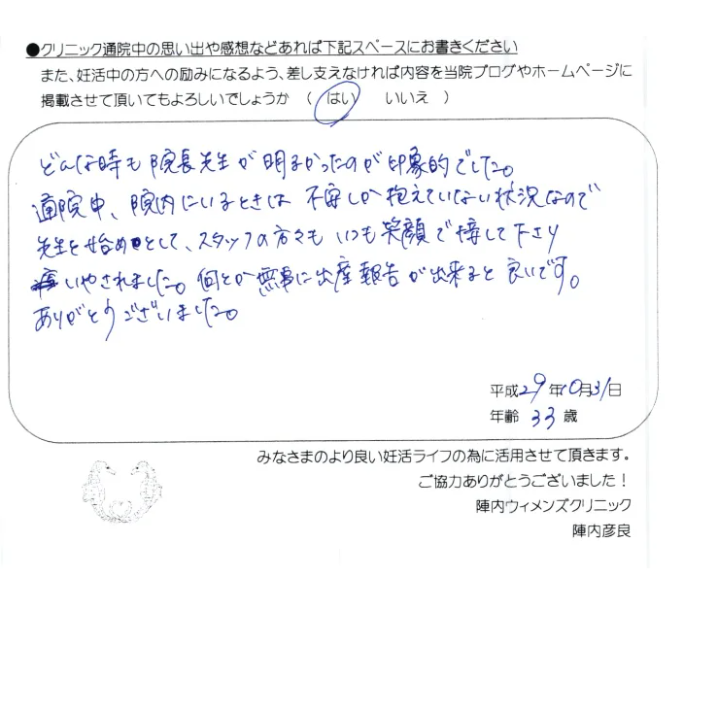 ●クリニック通院中の思い出や感想などあれば下記スペースにお書きください
また、妊活中の方への励みになるよう、差し支えなければ内容を当院ブログやホームページに
掲載させて頂いてもよろしいでしょうか （ はい　いいえ ）
どんな時も院長先生が明るかったのが印象的でした。
通院中、院内にいるときは不安しか抱えていない状況なので
先生を始めとして、スタッフの方々もいつも笑顔で接して下さり
いやされました。何とか無事に出産報告が出来ると良いです。
ありがとうございました。
平成29年10月31日
年齢 33 歳
みなさまのより良い妊活ライフの為に活用させて頂きます。
ご協力ありがとうございました！
陣内ウィメンズクリニック
陣内彦良